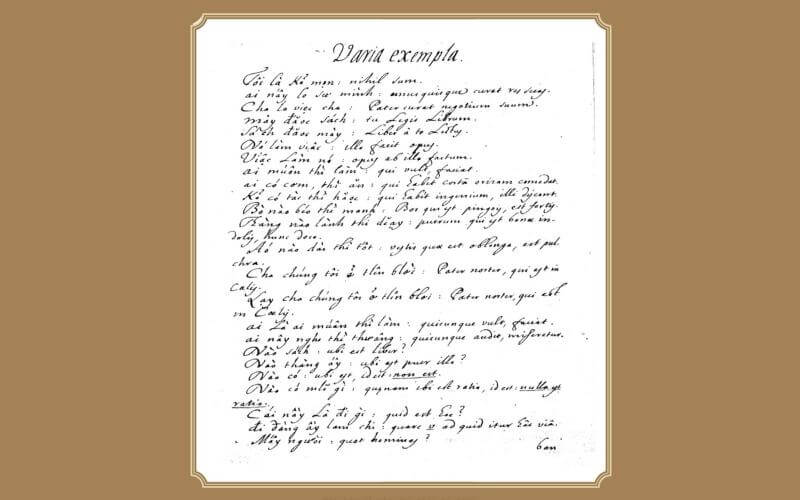 Varia exempla.
Tôi là kẻ mọn: nihil sum.
ai nấy lo sự mình: unusquisque curat res suas.
Cha lo việc cha: Pater curat negotium suum.
mày đăọc sách: tu Legis Librum.
Sách đăọc mày: Liber à te Legitur
Nó làm việc: ille facit opus.
Việc Làm nó: opus ab illo factum.
ai muấn thì làm: qui vult, faciat.
ai có cơm, thì ăn: qui habet orizam comedat.
Kẻ có tài thì hăọc: qui habet ingenium, ille discant.
Bò nào béo thì mạnh: Bos qui est pinguis, est fortis.
Thàng nào lành thì dĕạy: puerum qui est bonæ in-
dolis, hunc doce.
Áó nào dài thì tốt: vestis quæ est oblonga, est pul
chra.
Cha chúng tôi ở tlên blời: Pater noster, qui est in
Cælis.
Lạy cha chúng tôi ở tlên blời: Pater noster, qui est
in Cœlis.
ai Là ai muấn thì làm: quicunque vult, faciat.
ai nấy nghe thì thương: quicunque audit, misereretur.
Nào sách: ubi est liber?
Nào thàng ấy: ubi est puer ille?
Nào có: ubi est, id est: non est.
Nào có mlẽ gì: quænam ibi est ratio, id est: nulla est
ratio.
Cái này Là đí gì: quid est hoc?
đi đàng ấy làm chi: quare ad quid itur hac viâ.
Mấy người: quot homines?